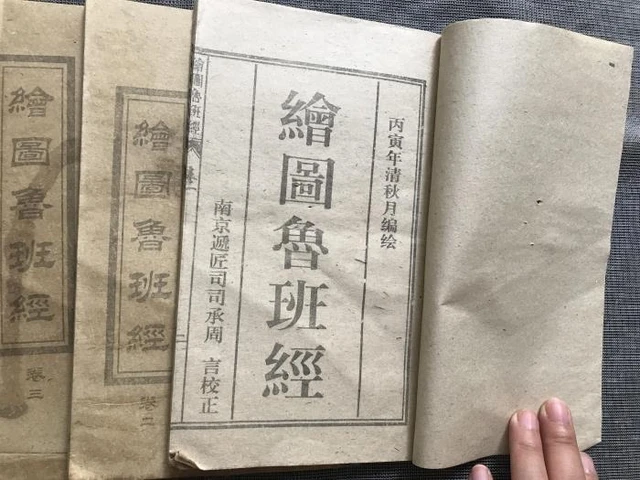 丙寅年清秋月编绘
繪圖魯班經
南京遞匠司司承周 言校正
繪圖魯班經
繪圖魯班經
卷二
繪圖魯班經
卷三